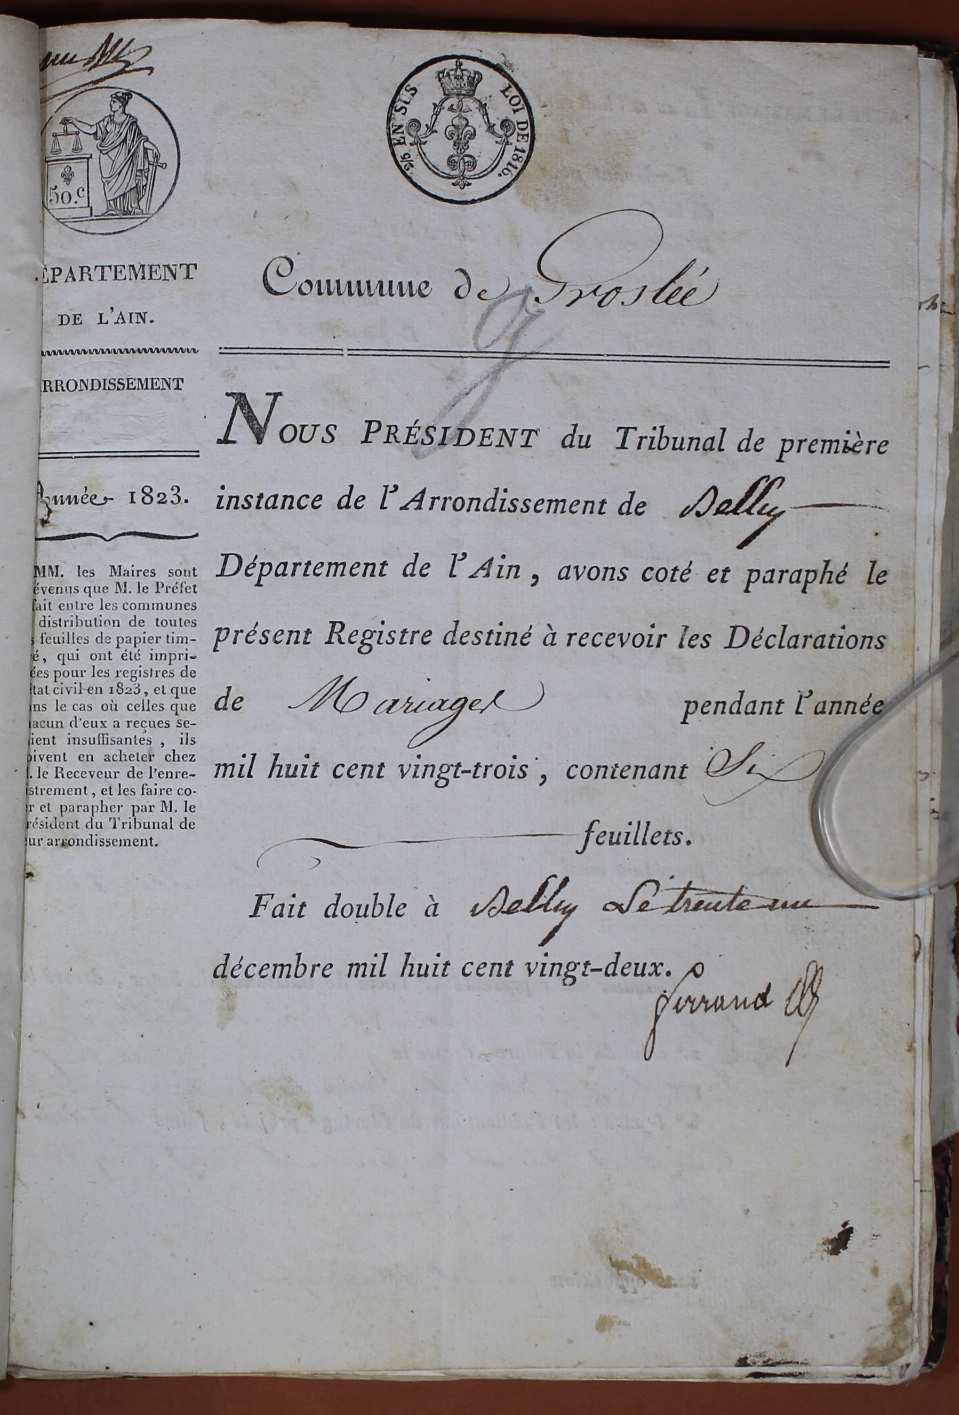 50.c
2/5 EN SUS LOI DE 1816.
ÉPARTEMENT
DE L'AIN.
RRONDISSEMENT
Année 1823.
MM. les Maires sont
évenus que M. le Préfet
fait entre les communes
distribution de toutes
s feuilles de papier tim-
é, qui ont été impri-
ées pour les registres de
état civil en 1823, et que
ans le cas où celles que
hacun d'eux a reçues se-
aient insuffisantes, ils
oivent en acheter chez
. le Receveur de l'enre-
istrement, et les faire co-
r et parapher par M. le
résident du Tribunal de
ur arrondissement.
Commune de Groslée
g
NOUS PRÉSIDENT du Tribunal de première
instance de l'Arrondissement de Belley
Département de l'Ain, avons coté et paraphé le
présent Registre destiné à recevoir les Déclarations
de Mariages pendant l'année
mil huit cent vingt-trois, contenant Six
feuillets.
Fait double à Belley Le trente un
décembre mil huit cent vingt-deux.
ferrand